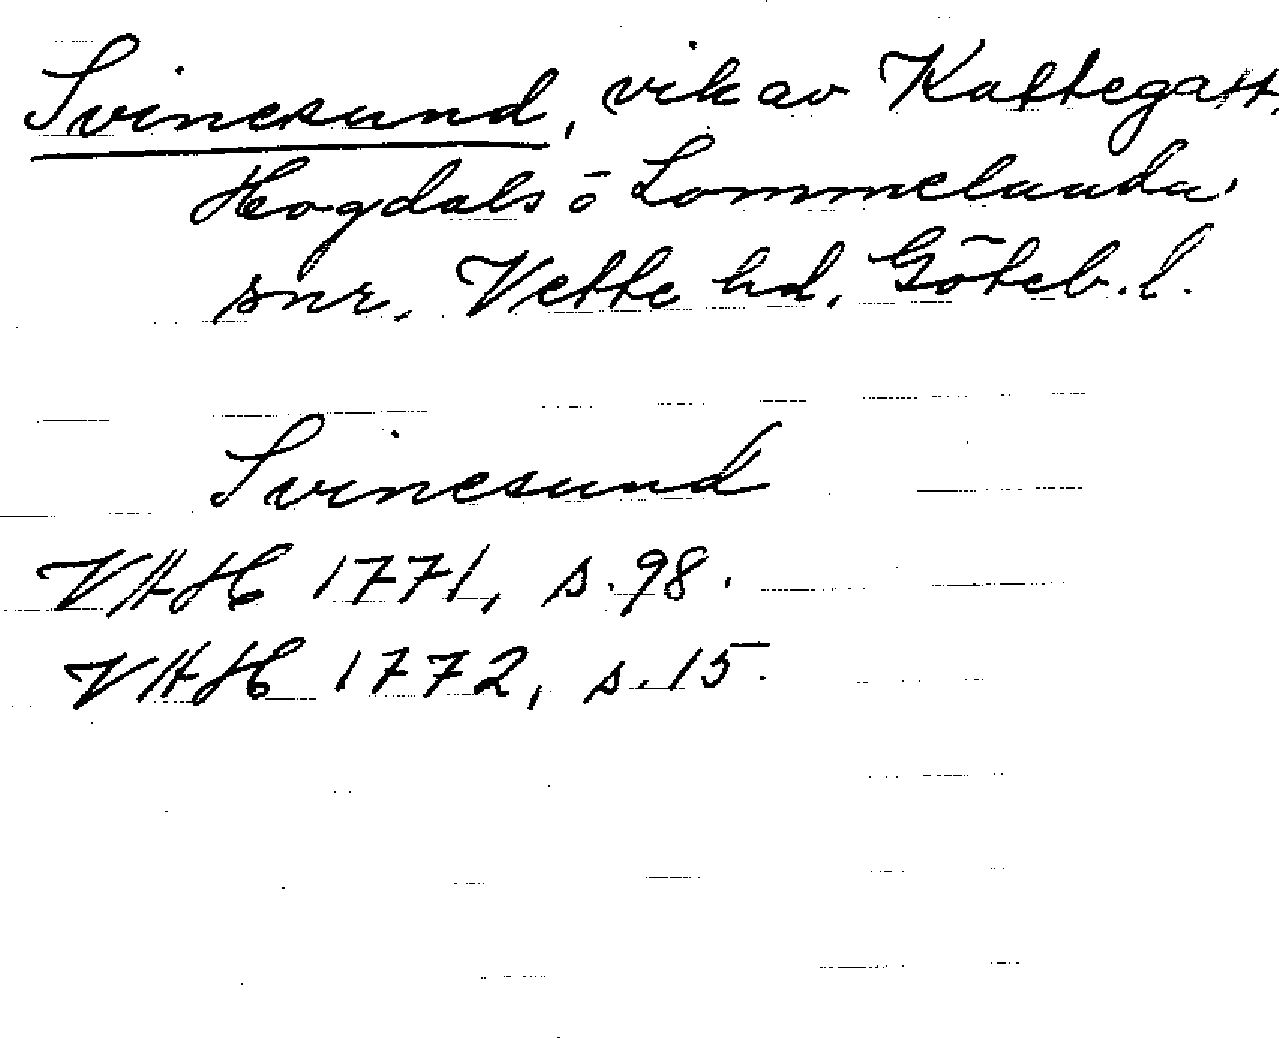 Svinesund, vik av Kattegatt,
Hogdals o Lommelanda
snr, Vette hd, Göteb. l.
Svinesund
VAH 1771, s. 98.
VAH 1772, s. 15.